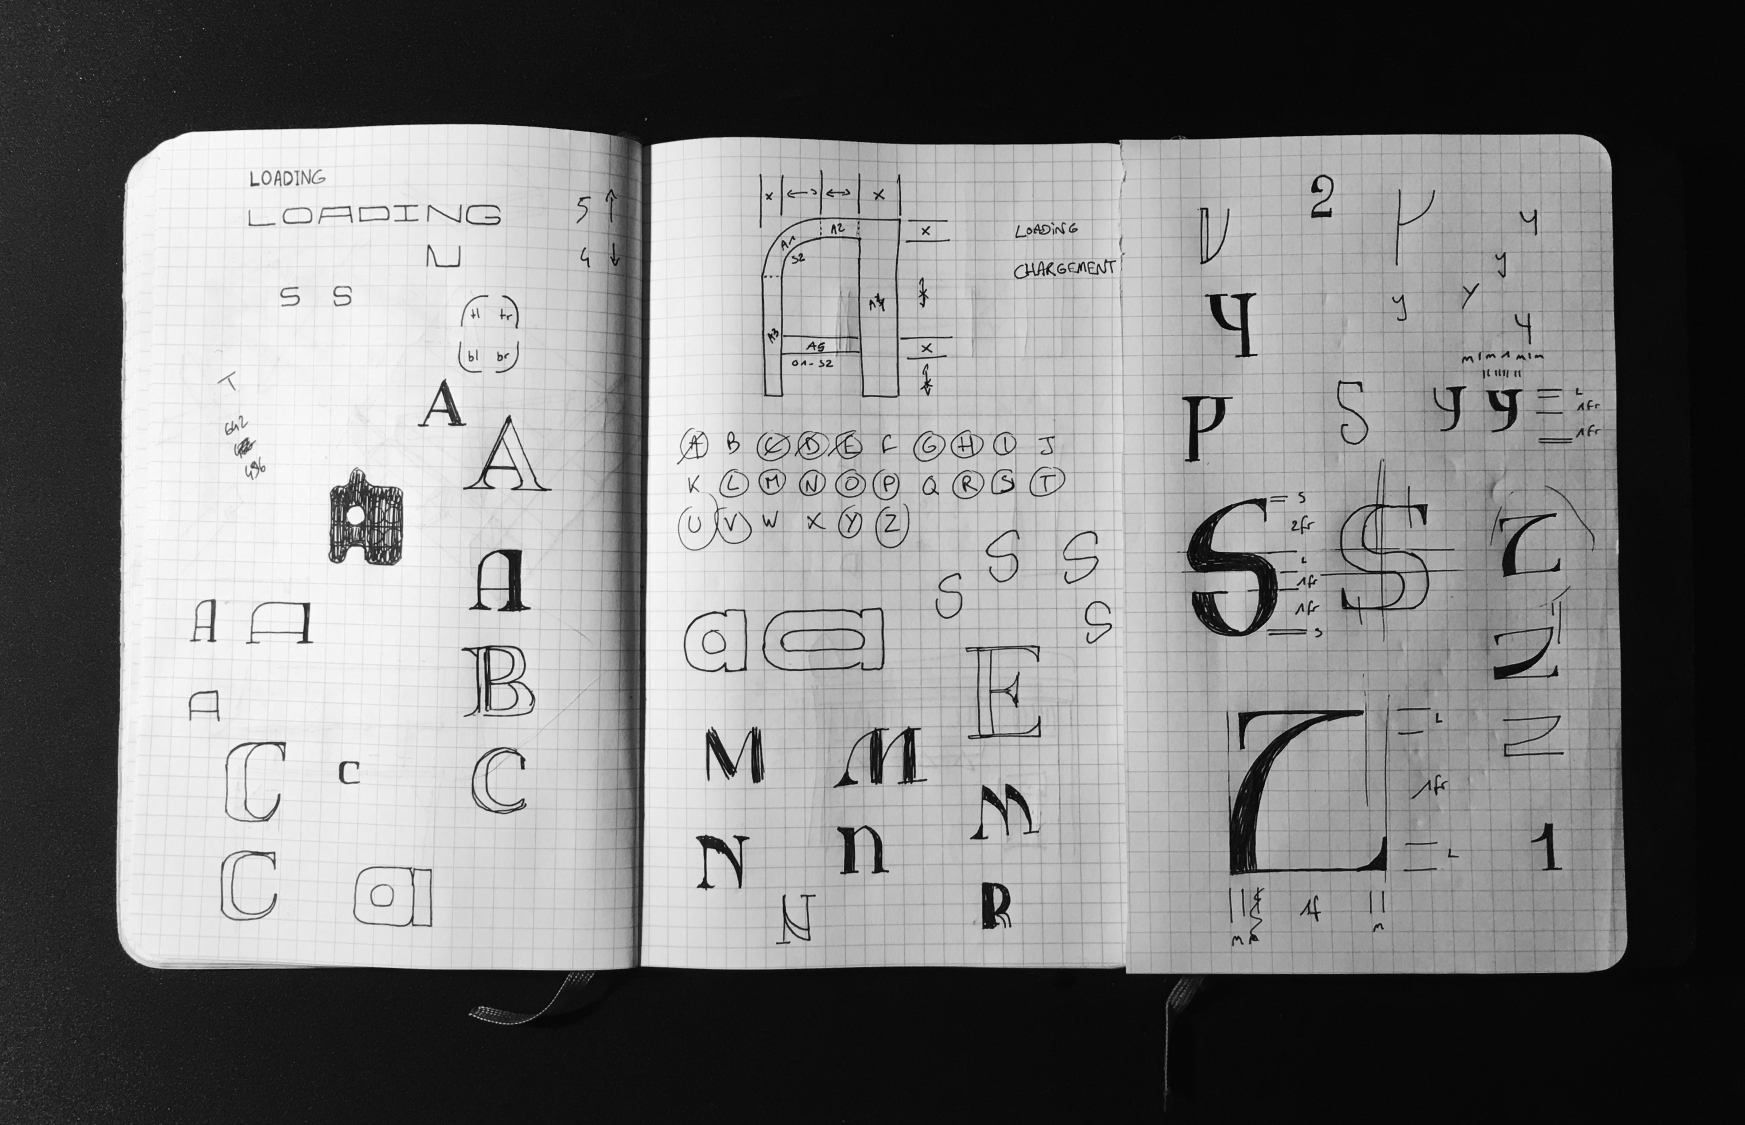 LOADING
LOADING
5 ↑
N
4 ↓
S S
tl tr
bl br
T
642
496
A
A
A
A A
B
A
C c C
C a
x ↔ ↔ x
A1 A2 x
S2
A3
A5 x
01-S2
LOADING
CHARGEMENT
A B C D E F G H I J
K L M N O P Q R S T
U V W X Y Z
S S
S S
a a E
M M M
N n
N R
2
y
y
y y
y y
m 1 m 1 m 1 m
P S y y L
1fr
1fr
S S
2fr
L
1fr
1fr
S
S Z
Z
Z L
Z
1fr
L
1
1f
m